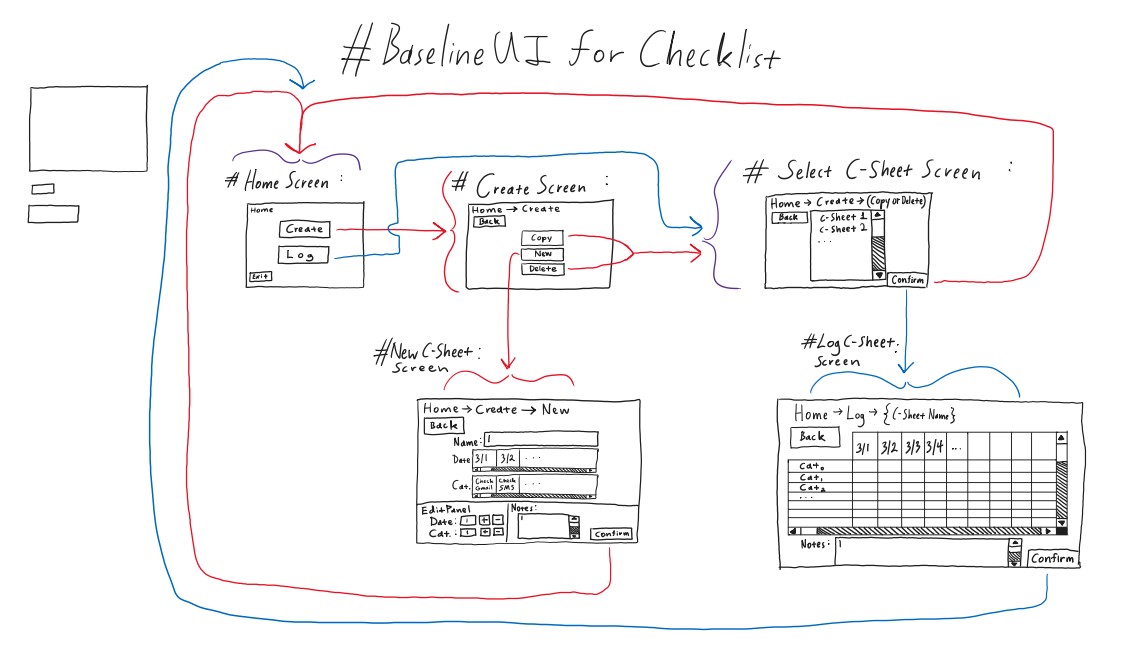 # Baseline UI for Checklist
# Home Screen :
Home
Create
Log
Exit
# Create Screen :
Home → Create
Back
Copy
New
Delete
# Select C-Sheet Screen :
Home → Create → (Copy or Delete)
Back
C-Sheet 1
C-Sheet 2
...
Confirm
#New C-Sheet :
Screen
Home → Create → New
Back
Name:
Date 3/1 3/2 ...
Cat. Check Gmail Check SMS ...
Edit Panel
Date: 1 + -
Cat.: 1 + -
Notes:
Confirm
#Log C-Sheet:
Screen
Home → Log → {C-Sheet Name}
Back
3/1 3/2 3/3 3/4 ...
Cat₀
Cat₁
Cat₂
...
Notes:
Confirm